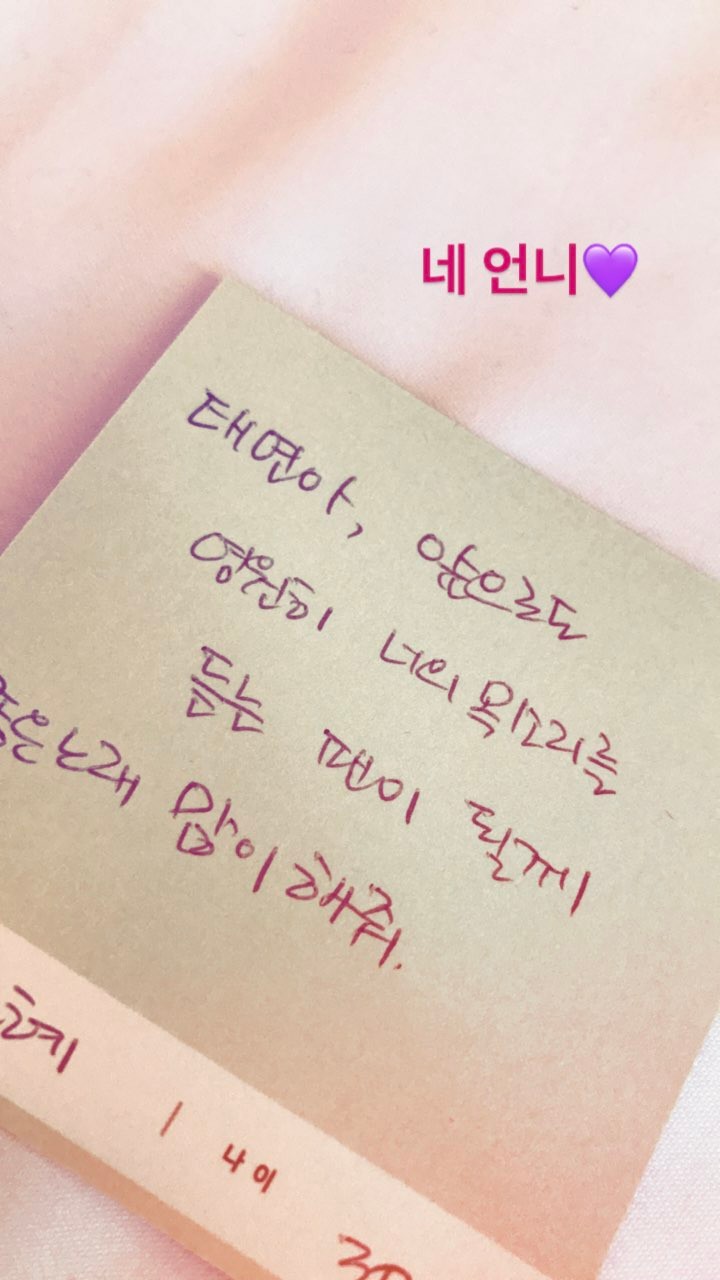 네 언니💜
태연아, 앞으로도
영원히 너의 목소리를
듣는 팬이 될께
좋은노래 많이해줘.